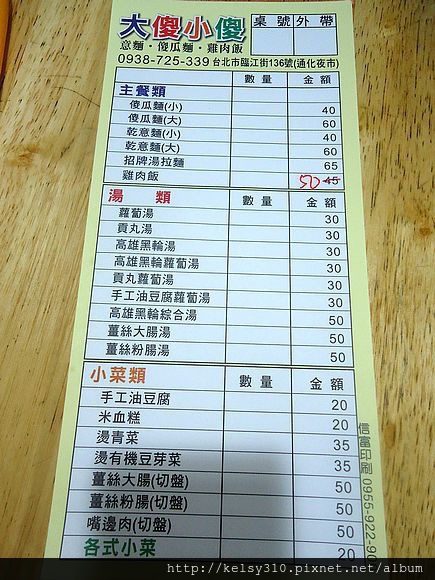 大傻小傻
桌號 外帶
意麵·傻瓜麵·雞肉飯
0938-725-339 台北市臨江街136號(通化夜市)
數量 金額
主餐類
傻瓜麵(小) 40
傻瓜麵(大) 60
乾意麵(小) 40
乾意麵(大) 60
招牌湯拉麵 65
雞肉飯 50 45
湯類 數量 金額
蘿蔔湯 30
貢丸湯 30
高雄黑輪湯 30
高雄黑輪蘿蔔湯 30
貢丸蘿蔔湯 30
手工油豆腐蘿蔔湯 30
高雄黑輪綜合湯 50
薑絲大腸湯 50
薑絲粉腸湯 50
小菜類 數量 金額
手工油豆腐 20
米血糕 20
燙青菜 35
燙有機豆芽菜 35
薑絲大腸(切盤) 50
薑絲粉腸(切盤) 50
嘴邊肉(切盤) 50
各式小菜 20
信富印刷 0955-922-90
http://kelsy310.pixnet.net/album